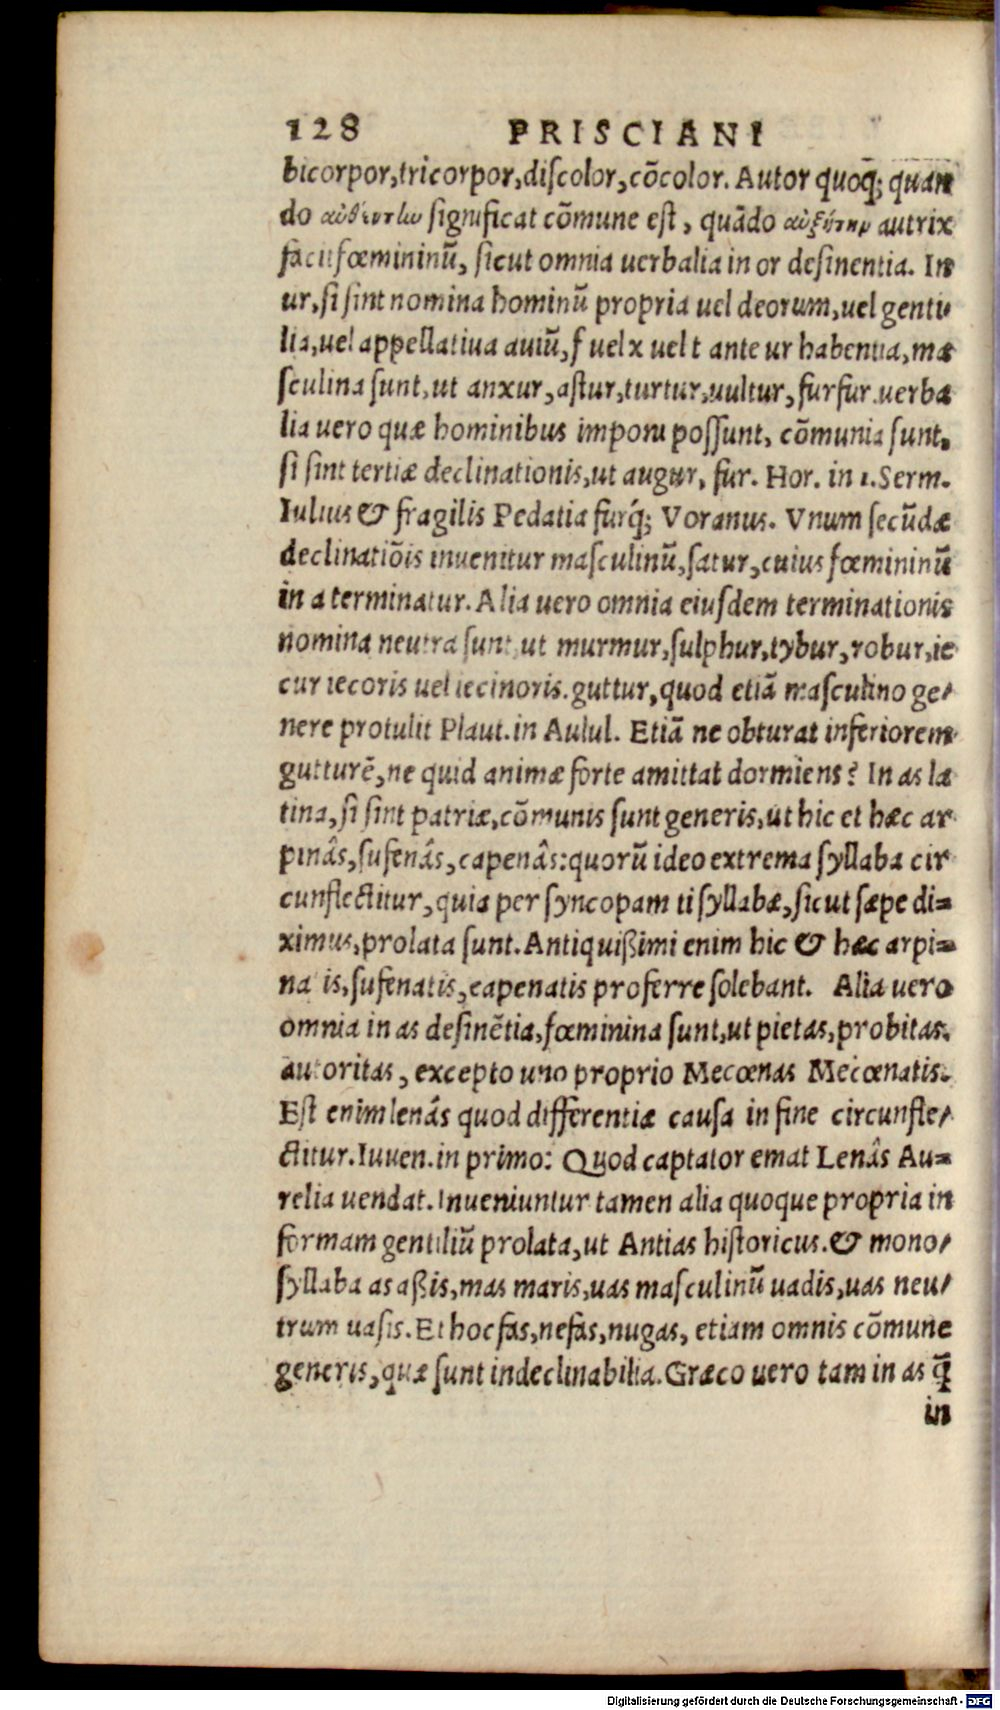 128 PRISCIANI
bicorpor,tricorpor,diſcolor,cõcolor. Autor quoq; quan
do αὐθέντην significat cõmune eſt, quãdo αὐξήτηρ autrix
facit fœmininũ, sicut omnia uerbalia in or desinentia. In
ur, si sint nomina hominũ propria uel deorum, uel genti-
lia, uel appellatiua auiũ, f uel x uel t ante ur habentia, ma
ſculina ſunt, ut anxur, aſtur, turtur, uultur, furfur. uerba
lia uero quæ hominibus imponi poſſunt, cõmunia ſunt,
si sint tertiæ declinationis, ut augur, fur. Hor. in 1. Serm.
Iulius & fragilis Pedatia furq́; Voranus. Vnum ſecũdæ
declinatiõis inuenitur maſculinũ, ſatur, cuius fœmininũ
in a terminatur. Alia uero omnia eiuſdem terminationis
nomina neutra ſunt, ut murmur, ſulphur, tybur, robur, ie
cur iecoris uel iecinoris. guttur, quod etiã maſculino ge/
nere protulit Plaut. in Aulul. Etiã ne obturat inferiorem
gutturẽ, ne quid animæ forte amittat dormiens? In as la
tina, si sint patriæ, cõmunis ſunt generis, ut hic et hæc ar
pinâs, ſufenâs, capenâs: quorũ ideo extrema ſyllaba cir
cunflectitur, quia per ſyncopam ti ſyllabæ, ſicut ſæpe di=
ximus, prolata ſunt. Antiquißimi enim hic & hæc arpi=
na is, ſufenatis, capenatis proferre ſolebant. Alia uero
omnia in as desinẽtia, fœminina ſunt, ut pietas, probitas,
autoritas, excepto uno proprio Mecœnas Mecœnatis.
Eſt enim lenâs quod differentiæ cauſa in fine circunfle/
ctitur. Iuuen. in primo: Quod captator emat Lenâs Au=
relia uendat. Inueniuntur tamen alia quoque propria in
formam gentiliũ prolata, ut Antias hiſtoricus. & mono/
ſyllaba as aßis, mas maris, uas maſculinũ uadis, uas neu/
trum uasis. Et hoc fas, nefas, nugas, etiam omnis cõmune
generis, quæ ſunt indeclinabilia. Græco uero tam in as q̃
in
Digitalisierung gefördert durch die Deutsche Forschungsgemeinschaft - DFG